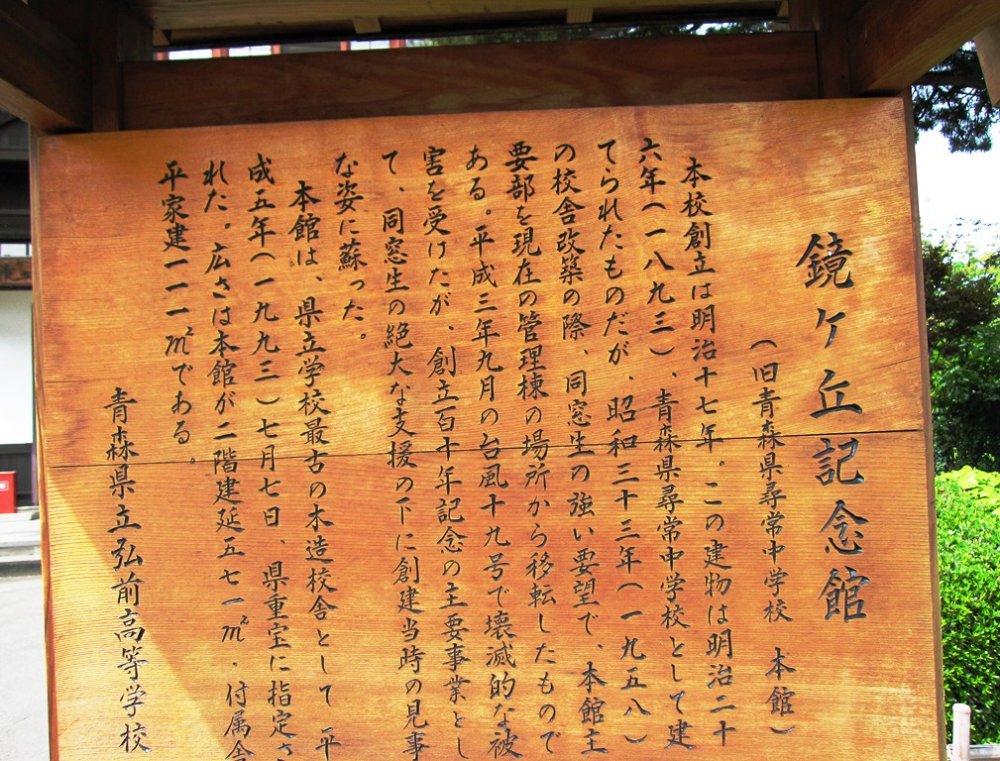 鏡ヶ丘記念館
(旧青森県尋常中学校 本館)
本校創立は明治十七年。この建物は明治二十
六年(一八九三)、青森県尋常中学校として建
てられたものだが、昭和三十三年(一九五八)
の校舎改築の際、同窓生の強い要望で、本館主
要部を現在の管理棟の場所から移転したもので
ある。平成三年九月の台風十九号で壊滅的な被
害を受けたが、創立百十年記念の主要事業とし
て、同窓生の絶大な支援の下に創建当時の見事
な姿に蘇った。
本館は、県立学校最古の木造校舎として 平
成五年(一九九三)七月七日、県重宝に指定さ
れた。広さは本館が二階建延五七一㎡、付属舎
平家建一一一㎡である。
青森県立弘前高等学校